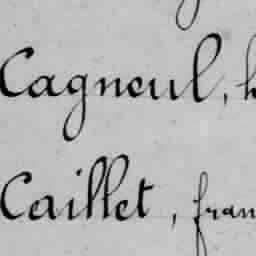 Cagneul, h
Caillet, fran